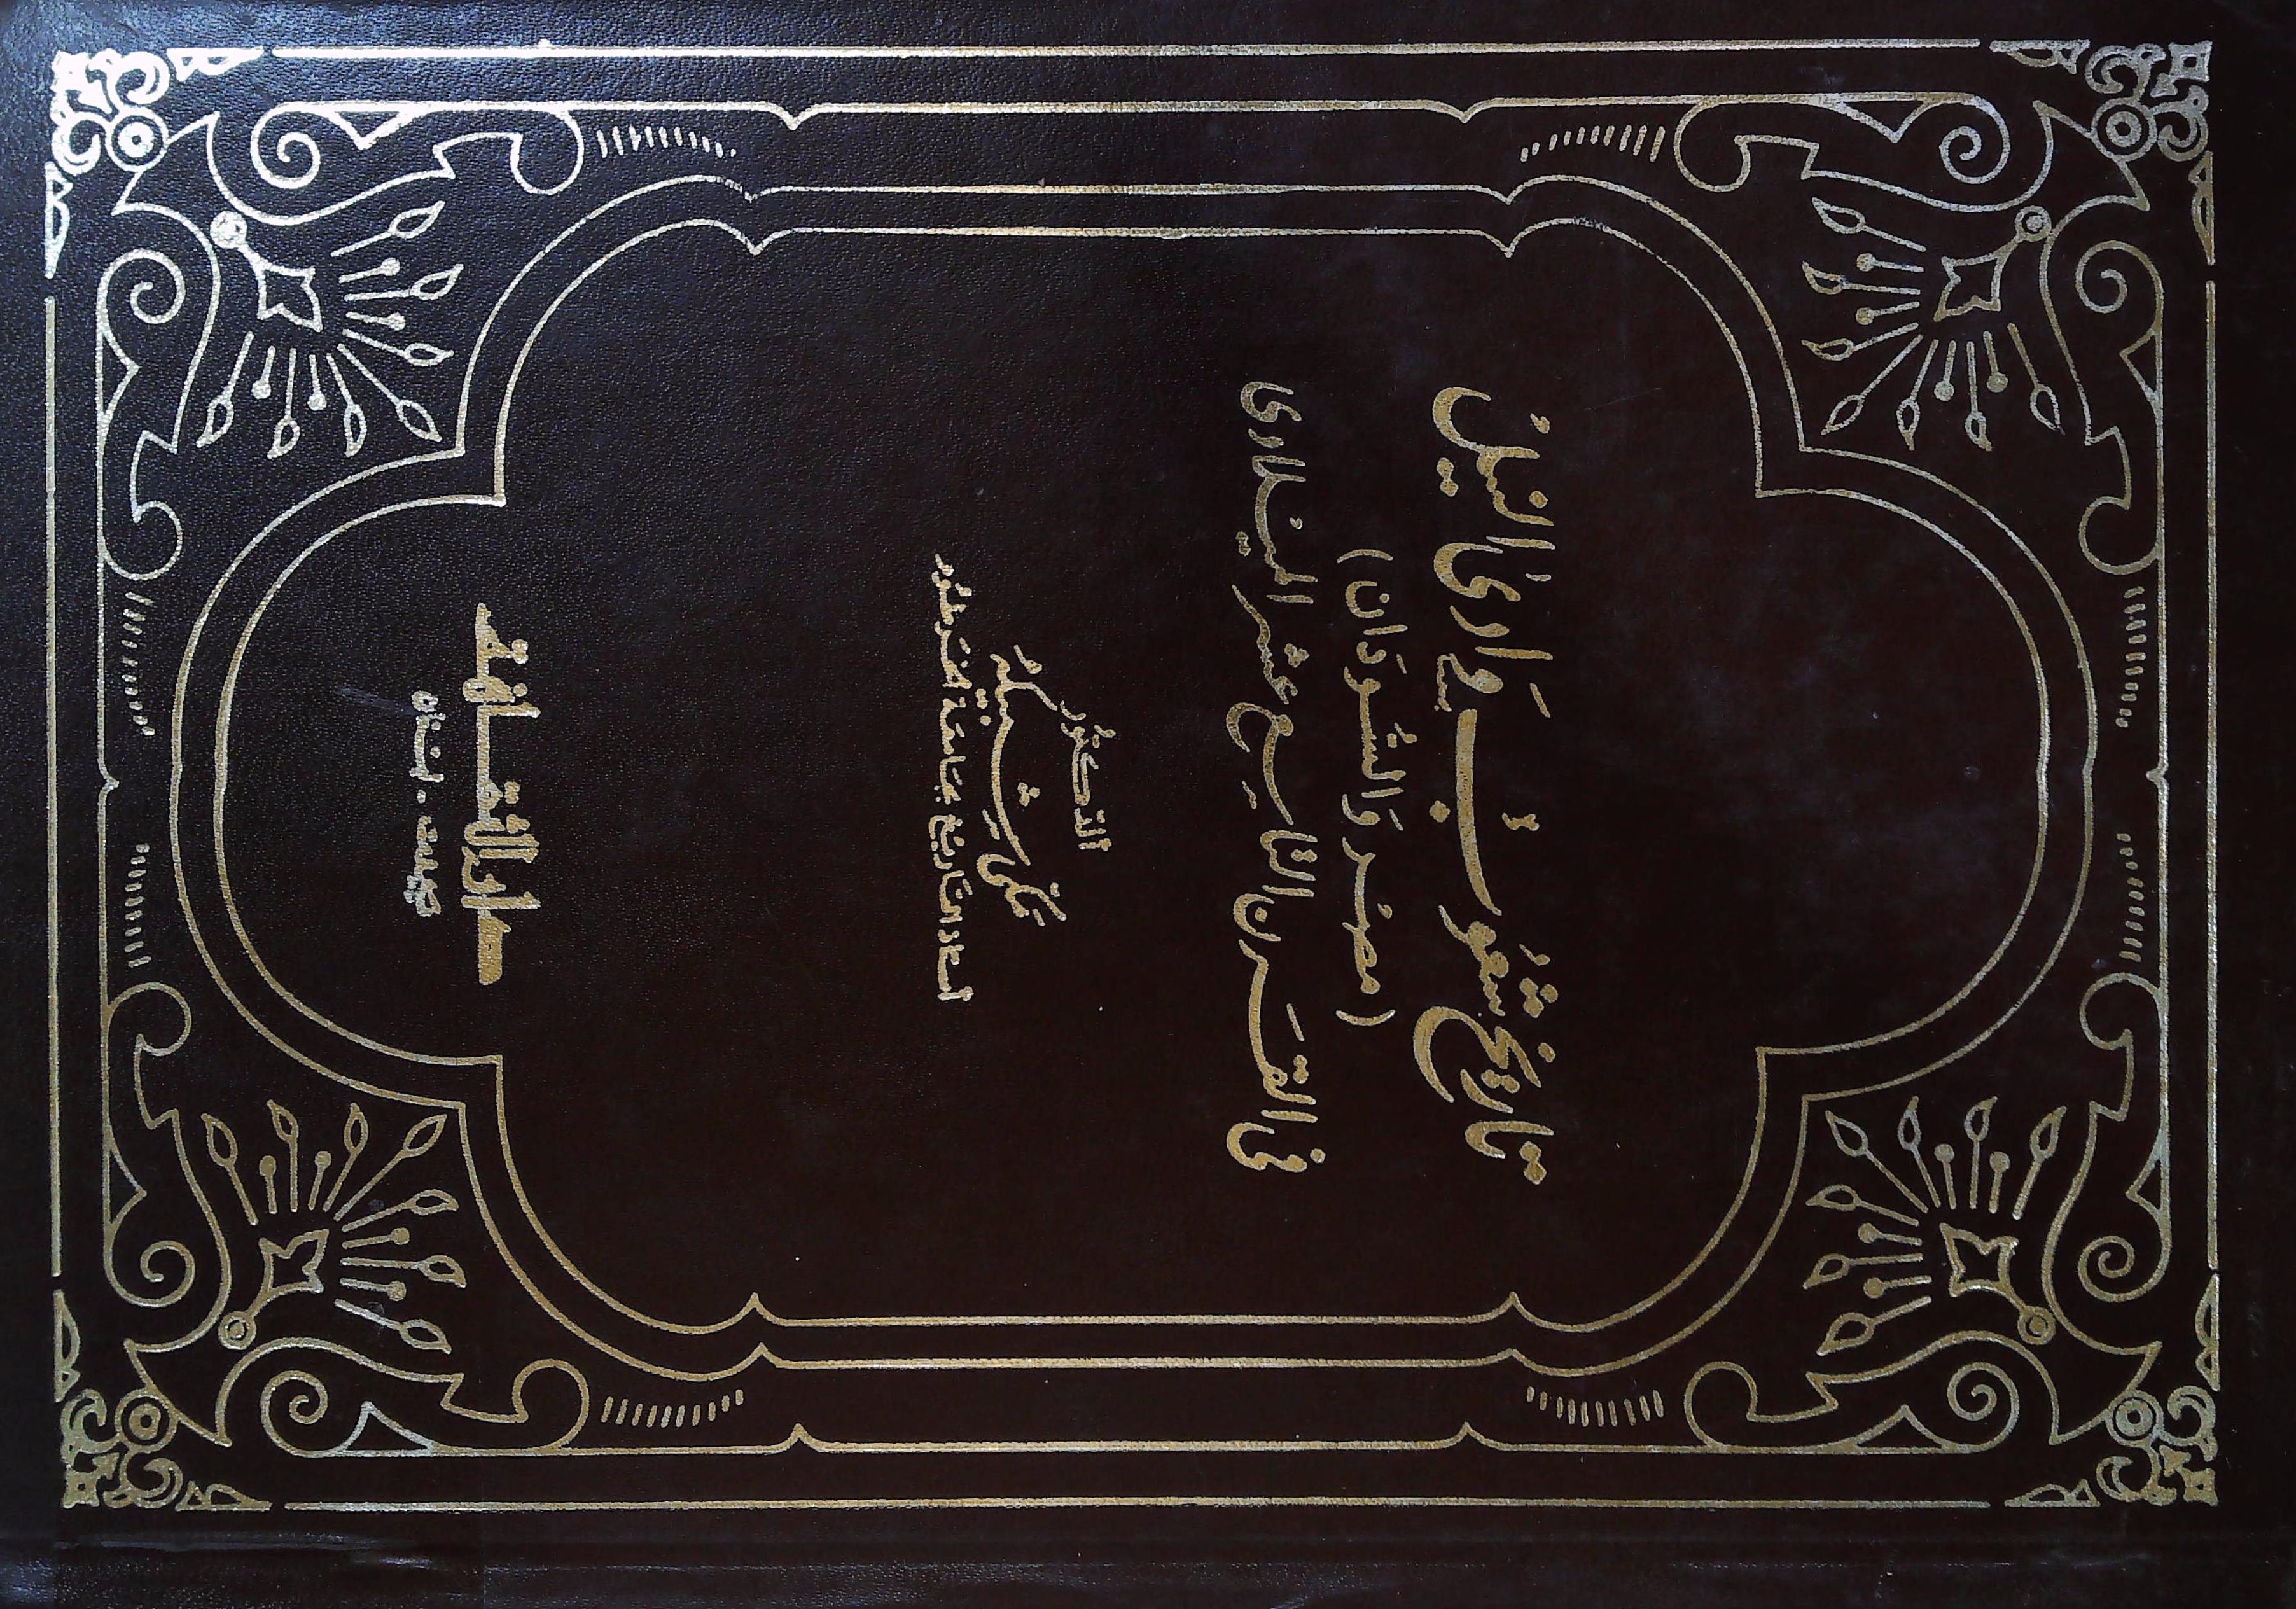 تاريخ شعُوب وَادى النيلْ
(مصْر وَالسُّودَان)
فى القَرن التاسِع عشر الميْلادى
الدّكتوُر
مَكّى شبيكهُ
أستاذ التَاريْخ بجَامعَة الخَرطوُم
دار الثقافة
بيروت - لبنان